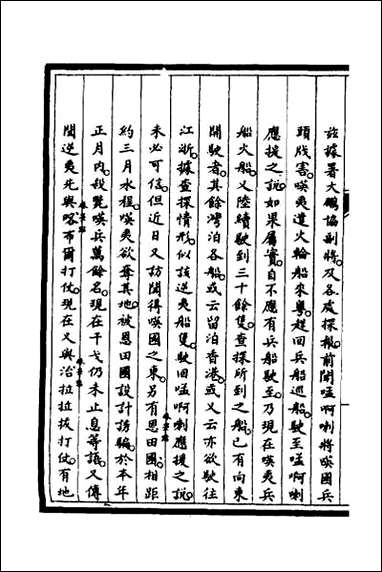 茲據署大鵬協副將及各處探報前聞嗌啊喇將暎國兵
頭戕害暎夷遣火輪船來粵趕回兵船巡船駛至嗌啊喇
應援之說如果屬實自不應有兵船駛至乃現在暎夷兵
船火船又陸續駛到三十餘隻查探所到之船已有向東
開駛者其餘灣泊各船或云留泊香港或又云亦欲駛往
江浙據查探情形似該逆夷船隻駛回嗌啊喇應援之說
未必可信但近日又訪聞得暎國之東另有恩田國相距
約三月水程暎夷欲奪其地被恩田國設計誘騙於本年
正月內殺斃暎兵萬餘名現在干戈仍未止息等語又傳
聞逆夷先與喀布爾打仗現在又與治拉拉拔打仗有地